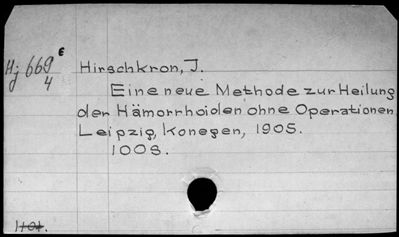 Hj 669 e
4
Hirschkron, J.
Eine neue Methode zur Heilung
der Hämorrhoiden ohne Operationen
Leipzig, Konegen, 1905.
100S.